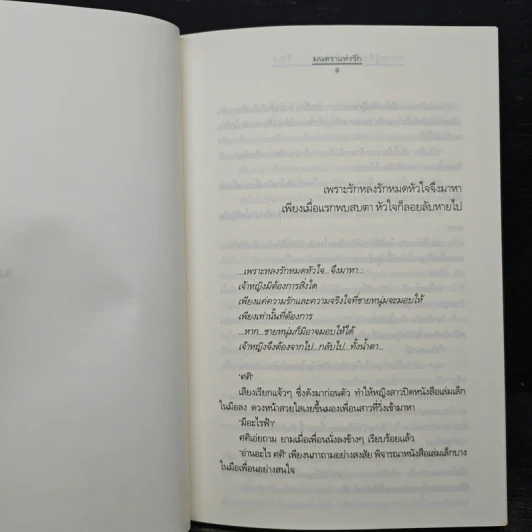 มนตราแห่งรัก
๑
เพราะรักหลงรักหมดหัวใจจึงมาหา
เพียงเมื่อแรกพบสบตา หัวใจก็ลอยลับหายไป
...เพราะหลงรักหมดหัวใจ...จึงมาหา...
เจ้าหญิงมิต้องการสิ่งใด
เพียงแค่ความรักและความจริงใจที่ชายหนุ่มจะมอบให้
เพียงเท่านั้นที่ต้องการ
...หาก...ชายหนุ่มก็มิอาจมอบให้ได้
เจ้าหญิงจึงต้องจากไป...กลับไป...ทั้งน้ำตา...
'ศศิ'
เสียงเรียกแจ้วๆ ซึ่งดังมาก่อนตัว ทำให้หญิงสาวปิดหนังสือเล่มเล็ก
ในมือลง ดวงหน้าสวยใสเงยขึ้นมองเพื่อนสาวที่วิ่งเข้ามาหา
'มีอะไรฟ้า'
ศศิเอ่ยถาม ยามเมื่อเพื่อนนั่งลงข้างๆ เรียบร้อยแล้ว
'อ่านอะไร ศศิ' เพียงนภาถามอย่างสงสัย พิจารณาหนังสือเล่มเล็กบาง
ในมือเพื่อนอย่างสนใจ